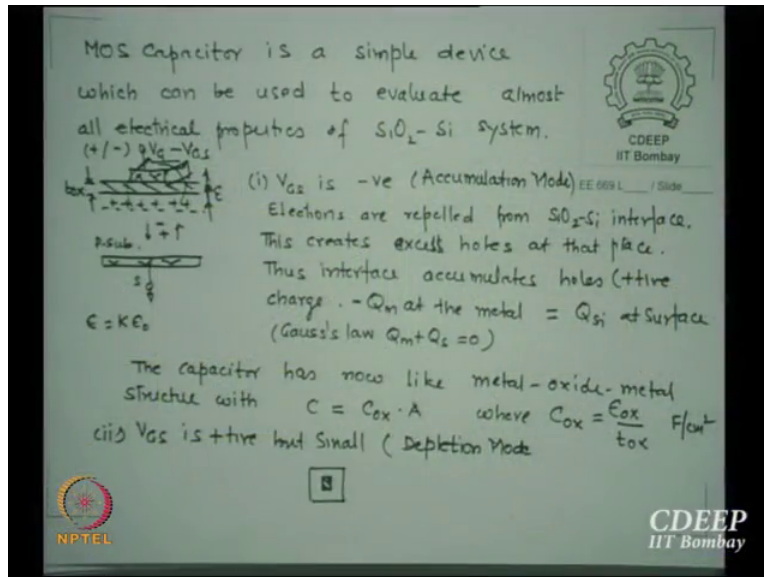 MOS Capacitor is a simple device
which can be used to evaluate almost
all electrical properties of SiO2-Si system.
CDEEP
IIT Bombay
(+/-) VG - VGS
tox
E
+ + + + +
P-Sub.
S
E = KE0
(i) VGS is -ve (Accumulation Mode)
EE 669 L____ / Slide____
Electrons are repelled from SiO2-Si interface.
This creates excess holes at that place.
Thus interface accumulates holes (+tive
charge. -Qm at the metal = Qsi at surface
(Gauss's law Qm+Qs =0)
The capacitor has now like metal-oxide-metal
structue with C = Cox . A where Cox = Eox/tox F/cm2
(ii) VGS is +tive but Small ( Depletion Mode
NPTEL
CDEEP
IIT Bombay